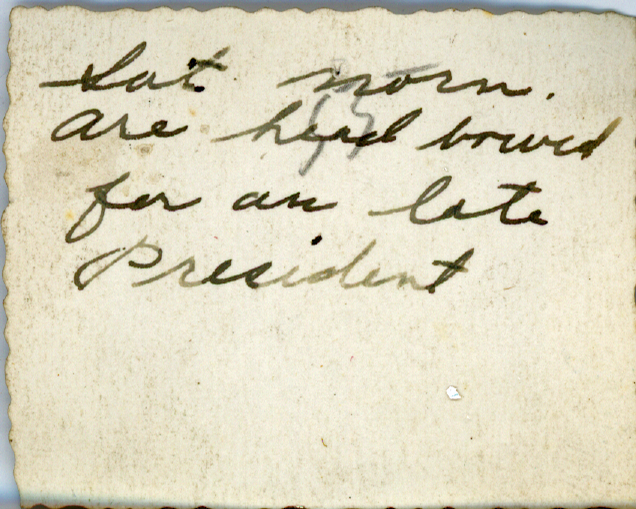 Sat morn.
are head bowed
for au late
President